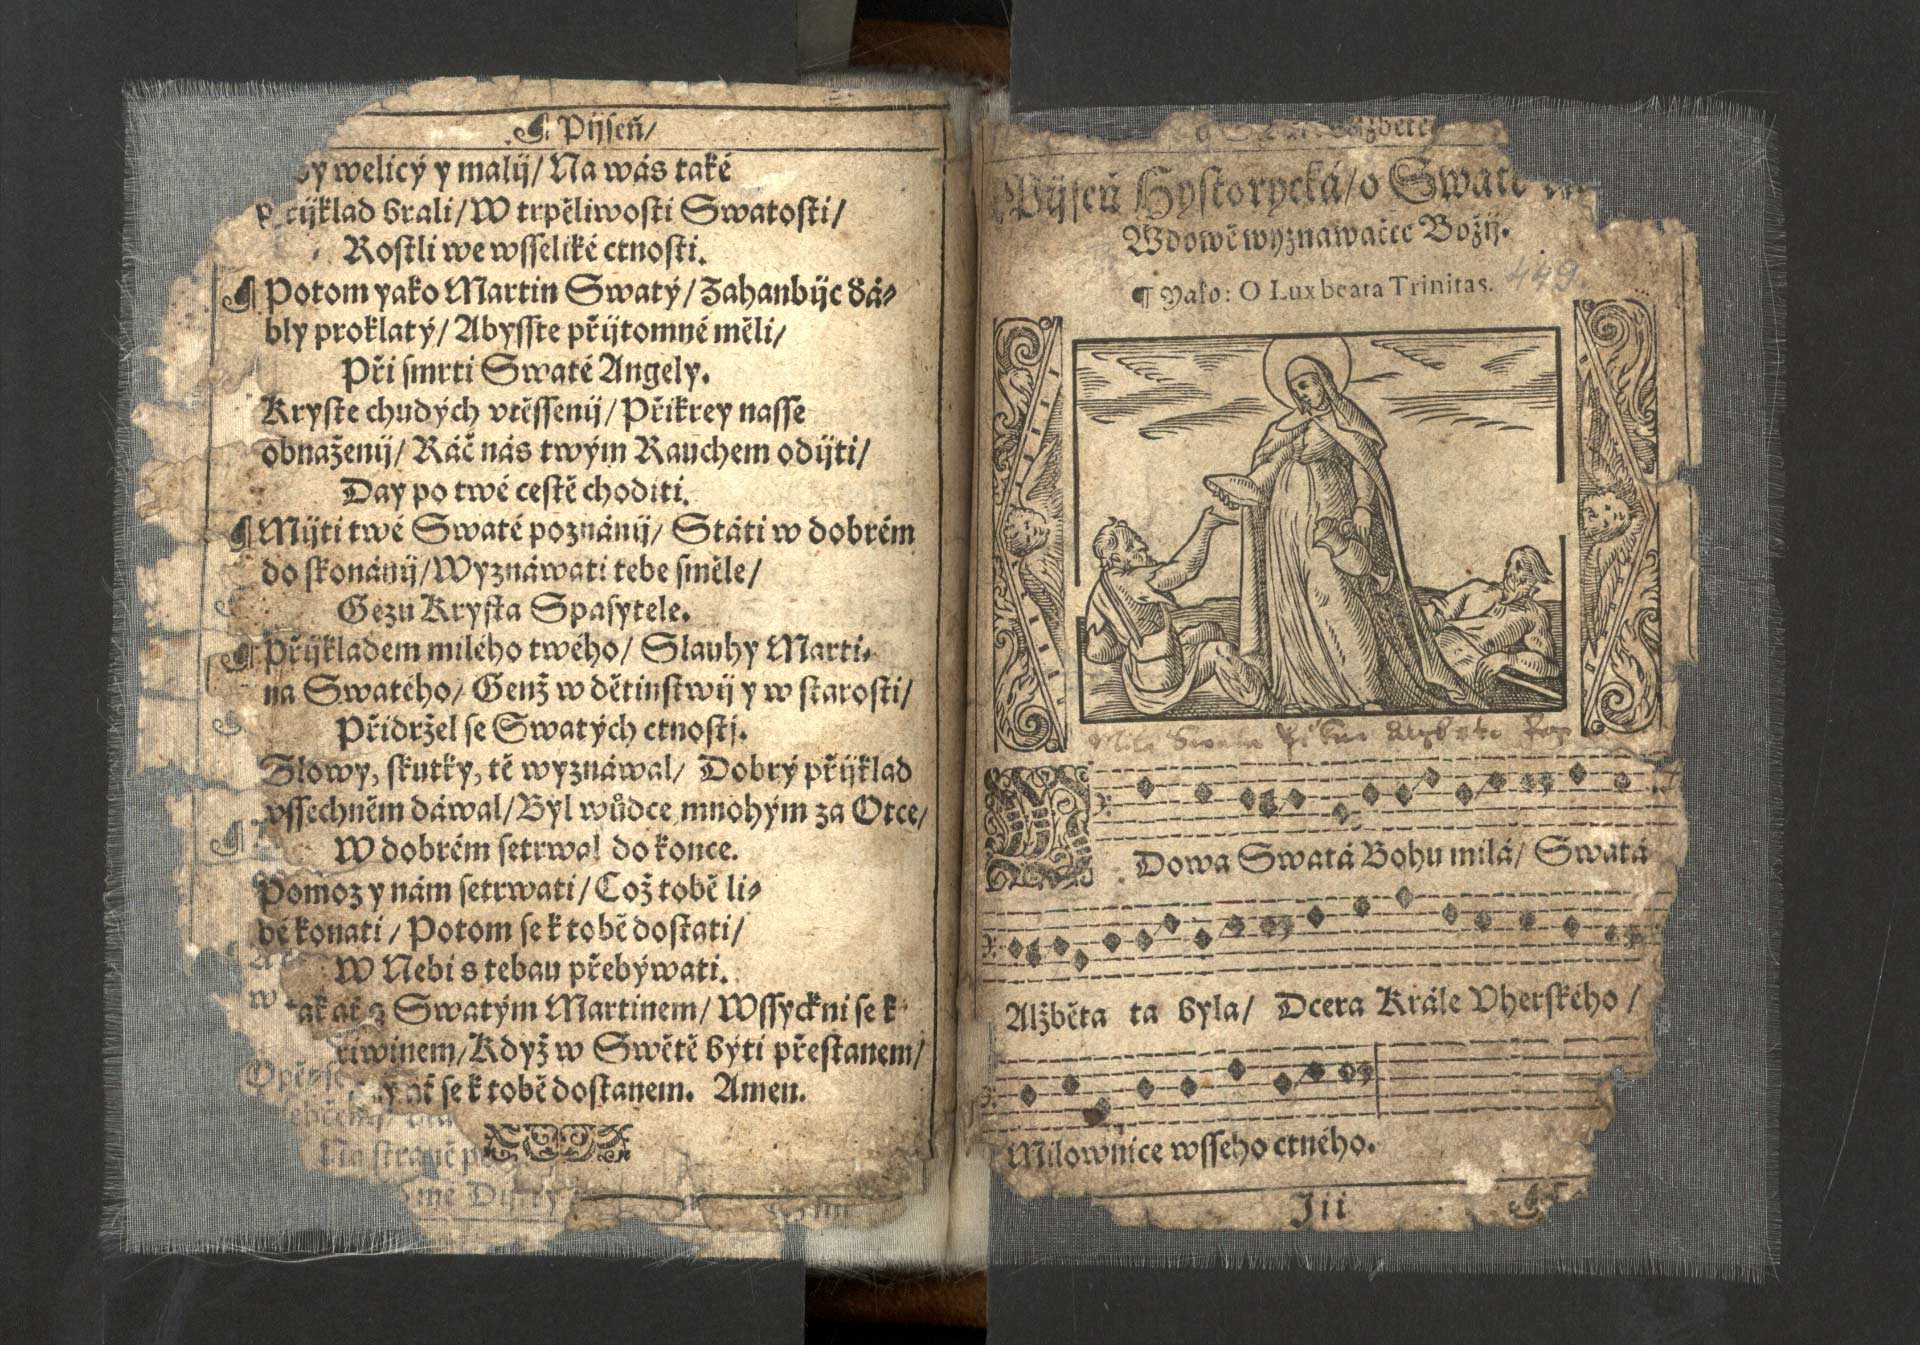 ¶ Pijseň/
welicý y malij/ Na wás také
brali/ W trpěliwosti Swatosti/
Rostli we wsseliké ctnosti.
¶ Potom yako Martin Swatý/ Zahanbijc ďá-
bly proklatý/ Abysste přijtomné měli/
Při smrti Swaté Angely.
Kryste chudých vtěssenij/ Přikrey nasse
obnaženij/ Ráč nás twým Rauchem odijti/
Day po twé cestě choditi.
¶ Mijti twé Swaté poznánij/ Státi w dobrém
do skonánij/ Wyznáwati tebe směle/
Gezu Krysta Spasytele.
¶ Přijkladem milého twého/ Slauhy Marti-
na Swatého/ Genž w dětinstwij y w starosti/
Přidržel se Swatých ctnostj.
Slowy, skutky, tě wyznáwal/ Dobrý přijklad
wssechněm dáwal/ Byl wůdce mnohým za Otce/
W dobrém setrwal do konce.
Pomoz y nám setrwati/ Což tobě li-
bé konati/ Potom se k tobě dostati/
W Nebi s tebau přebýwati.
ať Swatým Martinem/ Wssyckni se k
Když w Swětě býti přestanem/
ať se k tobě dostanem. Amen.
Na straně
Pijseň Hystorycká/ o Swaté
Wdowě wyznawačce Božij.
¶ Yako: O Lux beata Trinitas. 449.
WDowa Swatá Bohu milá/ Swatá
Alžběta ta byla/ Dcera Krále Vherského/
Milownice wsseho ctného.
Jii